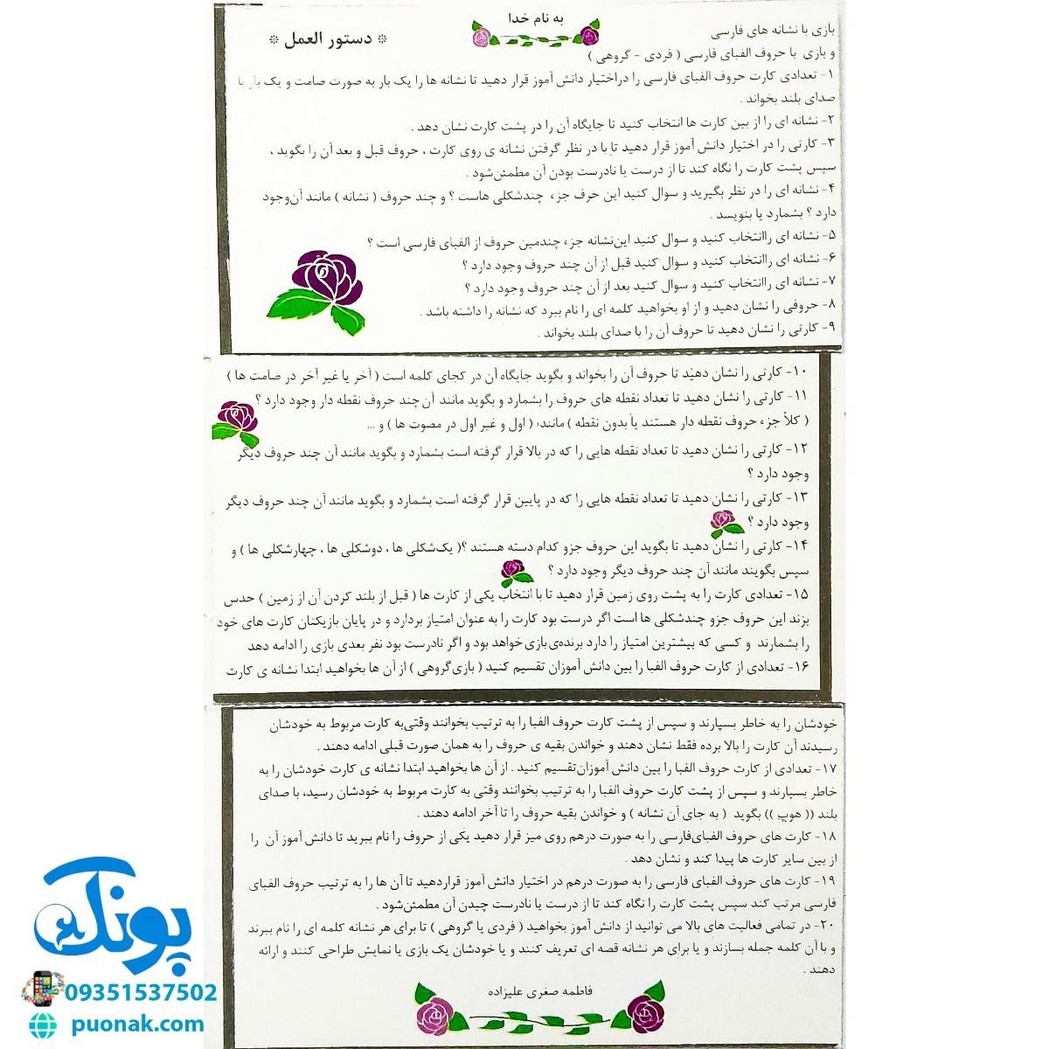 به نام خدا
بازی با نشانه های فارسی
* دستور العمل *
و بازی با حروف الفبای فارسی ( فردی - گروهی )
۱- تعدادی کارت حروف الفبای فارسی را دراختیار دانش آموز قرار دهید تا نشانه ها را یک بار به صورت صامت و یک بار با
صدای بلند بخواند .
۲- نشانه ای را از بین کارت ها انتخاب کنید تا جایگاه آن را در پشت کارت نشان دهد .
۳- کارتی را در اختیار دانش آموز قرار دهید تا با در نظر گرفتن نشانه ی روی کارت ، حروف قبل و بعد آن را بگوید ،
سپس پشت کارت را نگاه کند تا از درست یا نادرست بودن آن مطمئن‌شود .
۴- نشانه ای را در نظر بگیرید و سوال کنید این حرف جزء چندشکلی هاست ؟ و چند حروف ( نشانه ) مانند آن‌وجود
دارد ؟ بشمارد یا بنویسد .
۵- نشانه ای راانتخاب کنید و سوال کنید این‌نشانه جزء چندمین حروف از الفبای فارسی است ؟
۶- نشانه ای راانتخاب کنید و سوال کنید قبل از آن چند حروف وجود دارد ؟
۷- نشانه ای راانتخاب کنید و سوال کنید بعد از آن چند حروف وجود دارد ؟
۸- حروفی را نشان دهید و از او بخواهید کلمه ای را نام ببرد که نشانه را داشته باشد .
۹- کارتی را نشان دهید تا حروف آن را با صدای بلند بخواند .
۱۰- کارتی را نشان دهید تا حروف آن را بخواند و بگوید جایگاه آن در کجای کلمه است ( آخر یا غیر آخر در صامت ها )
۱۱- کارتی را نشان دهید تا تعداد نقطه های حروف را بشمارد و بگوید مانند آن چند حروف نقطه دار وجود دارد ؟
( کلاً جزء حروف نقطه دار هستند یا بدون نقطه ) مانند؛ ( اول و غیر اول در مصوت ها ) و ...
۱۲- کارتی را نشان دهید تا تعداد نقطه هایی را که در بالا قرار گرفته است بشمارد و بگوید مانند آن چند حروف دیگر
وجود دارد ؟
۱۳- کارتی را نشان دهید تا تعداد نقطه هایی را که در پایین قرار گرفته است بشمارد و بگوید مانند آن چند حروف دیگر
وجود دارد ؟
۱۴- کارتی را نشان دهید تا بگوید این حروف جزو کدام دسته هستند ؟( یک‌شکلی ها ، دوشکلی ها ، چهارشکلی ها ) و
سپس بگویند مانند آن چند حروف دیگر وجود دارد ؟
۱۵- تعدادی کارت را به پشت روی زمین قرار دهید تا با انتخاب یکی از کارت ها ( قبل از بلند کردن آن از زمین ) حدس
بزند این حروف جزو چندشکلی ها است اگر درست بود کارت را به عنوان امتیاز بردارد و در پایان بازیکنان کارت های خود
را بشمارند و کسی که بیشترین امتیاز را دارد برنده‌ی بازی خواهد بود و اگر نادرست بود نفر بعدی بازی را ادامه دهد
۱۶- تعدادی از کارت حروف الفبا را بین دانش آموزان تقسیم کنید ( بازی گروهی ) از آن ها بخواهید ابتدا نشانه ی کارت
خودشان را به خاطر بسپارند و سپس از پشت کارت حروف الفبا را به ترتیب بخوانند وقتی‌به کارت مربوط به خودشان
رسیدند آن کارت را بالا برده فقط نشان دهند و خواندن بقیه ی حروف را به همان صورت قبلی ادامه دهند .
۱۷- تعدادی از کارت حروف الفبا را بین دانش آموزان‌تقسیم کنید . از آن ها بخواهید ابتدا نشانه ی کارت خودشان را به
خاطر بسپارند و سپس از پشت کارت حروف الفبا را به ترتیب بخوانند وقتی به کارت مربوط به خودشان رسید، با صدای
بلند (( هوپ )) بگوید ( به جای آن نشانه ) و خواندن بقیه حروف را تا آخر ادامه دهند .
۱۸- کارت های حروف الفبای‌فارسی را به صورت درهم روی میز قرار دهید یکی از حروف را نام ببرید تا دانش آموز آن را
از بین سایر کارت ها پیدا کند و نشان دهد .
۱۹- کارت های حروف الفبای فارسی را به صورت درهم در اختیار دانش آموز قراردهید تا آن ها را به ترتیب حروف الفبای
فارسی مرتب کند سپس پشت کارت را نگاه کند تا از درست یا نادرست چیدن آن مطمئن‌شود .
۲۰- در تمامی فعالیت های بالا می توانید از دانش آموز بخواهید ( فردی یا گروهی ) تا برای هر نشانه کلمه ای را نام ببرند
و با آن کلمه جمله بسازند و یا برای هر نشانه قصه ای تعریف کنند و یا خودشان یک بازی یا نمایش طراحی کنند و ارائه
دهند .
فاطمه صغری علیزاده
پونک
09351537502
puonak.com